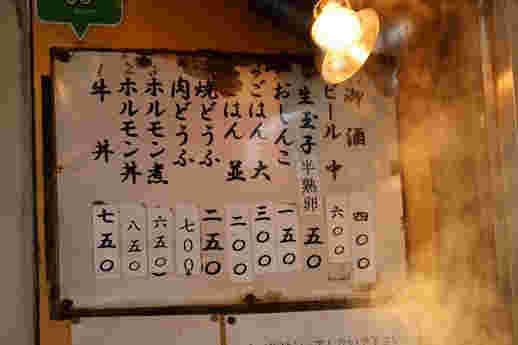 御酒 四〇〇
ビール 中 六〇〇
生玉子 半熟卵 五〇
おしんこ 一五〇
ごはん 大 三〇〇
ごはん 並 二〇〇
焼どうふ 二五〇
肉どうふ 七〇〇
ホルモン煮 六五〇
ホルモン丼 八五〇
牛丼 七五〇